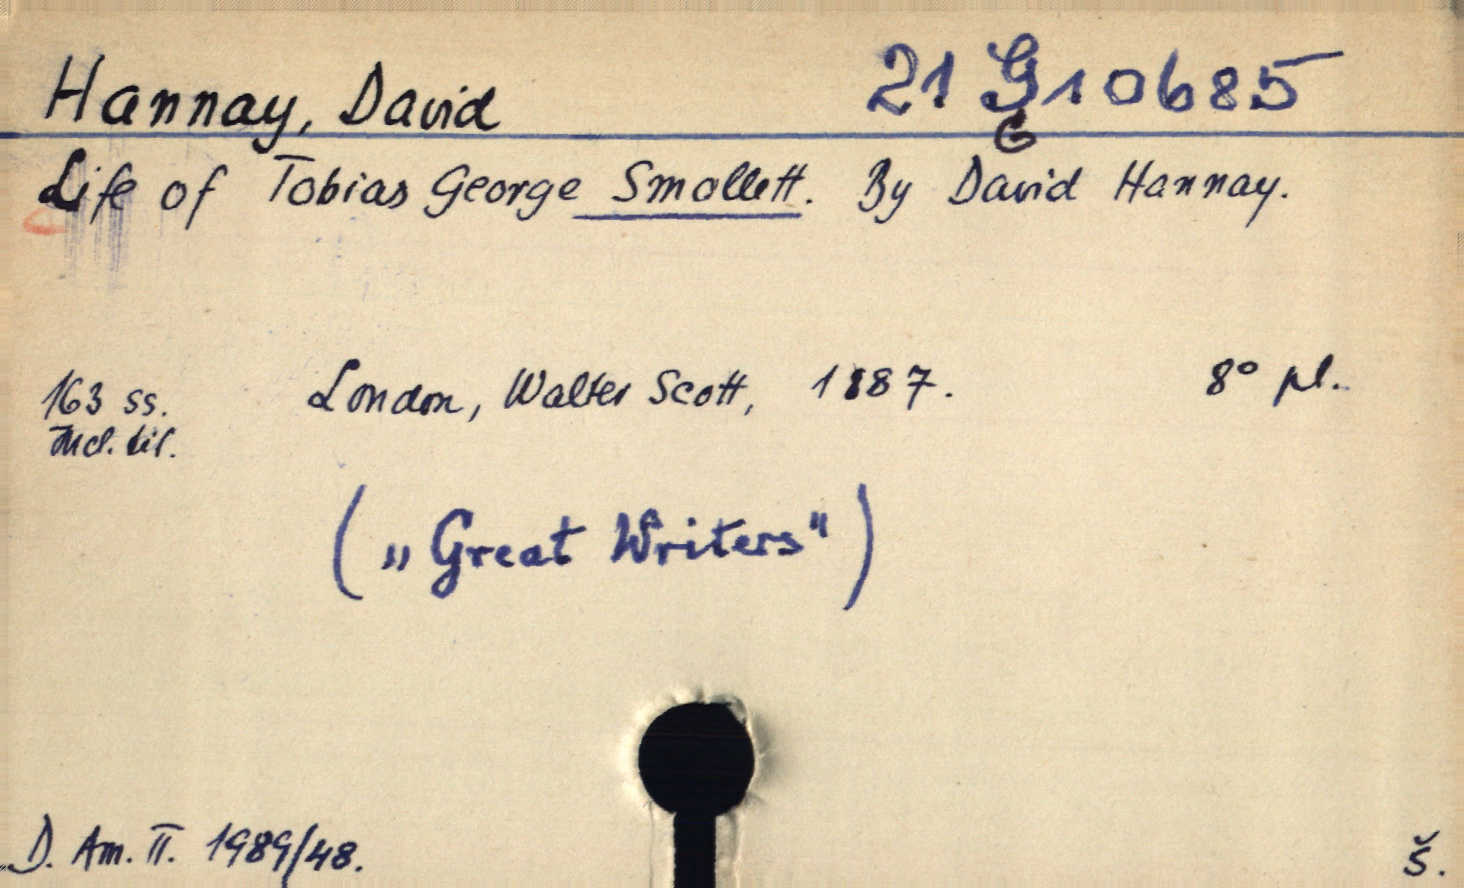 Hannay, David 21 G 10685
G
Life of Tobias George Smollett. By David Hannay.
163 ss. London, Walter Scott, 1887. 8° pl.
Incl. tit.
(„Great Writers")
D. Am. II. 1989/48. š.